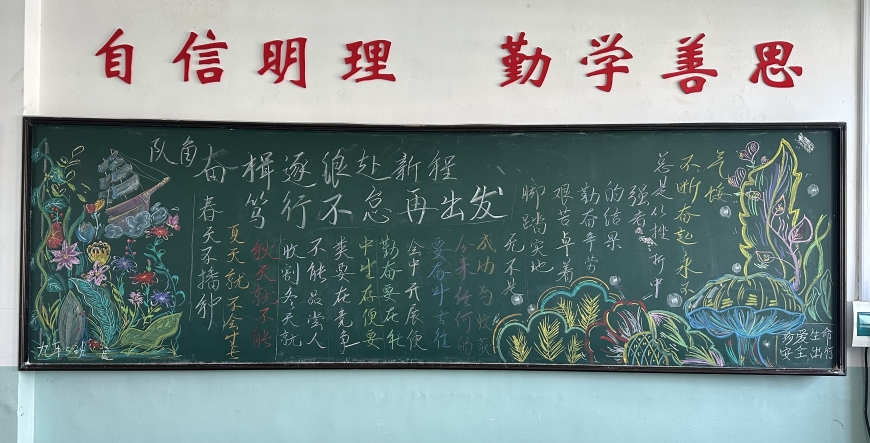 自信明理 勤学善思
队角
奋楫逐浪赴新程
笃行不怠再出发
春天不播种
夏天就不会
秋天就不能
收割冬天就
不能品尝人
类要在竞争
中生存便要
勤奋要在
会中开展便
要奋斗古往
今来任何的
成功与收获
无不是
脚踏实地
艰苦卓著
勤奋辛劳
的结果
强者
总是从挫折中
不断奋起永不
气馁
九年5班
珍爱生命
安全出行